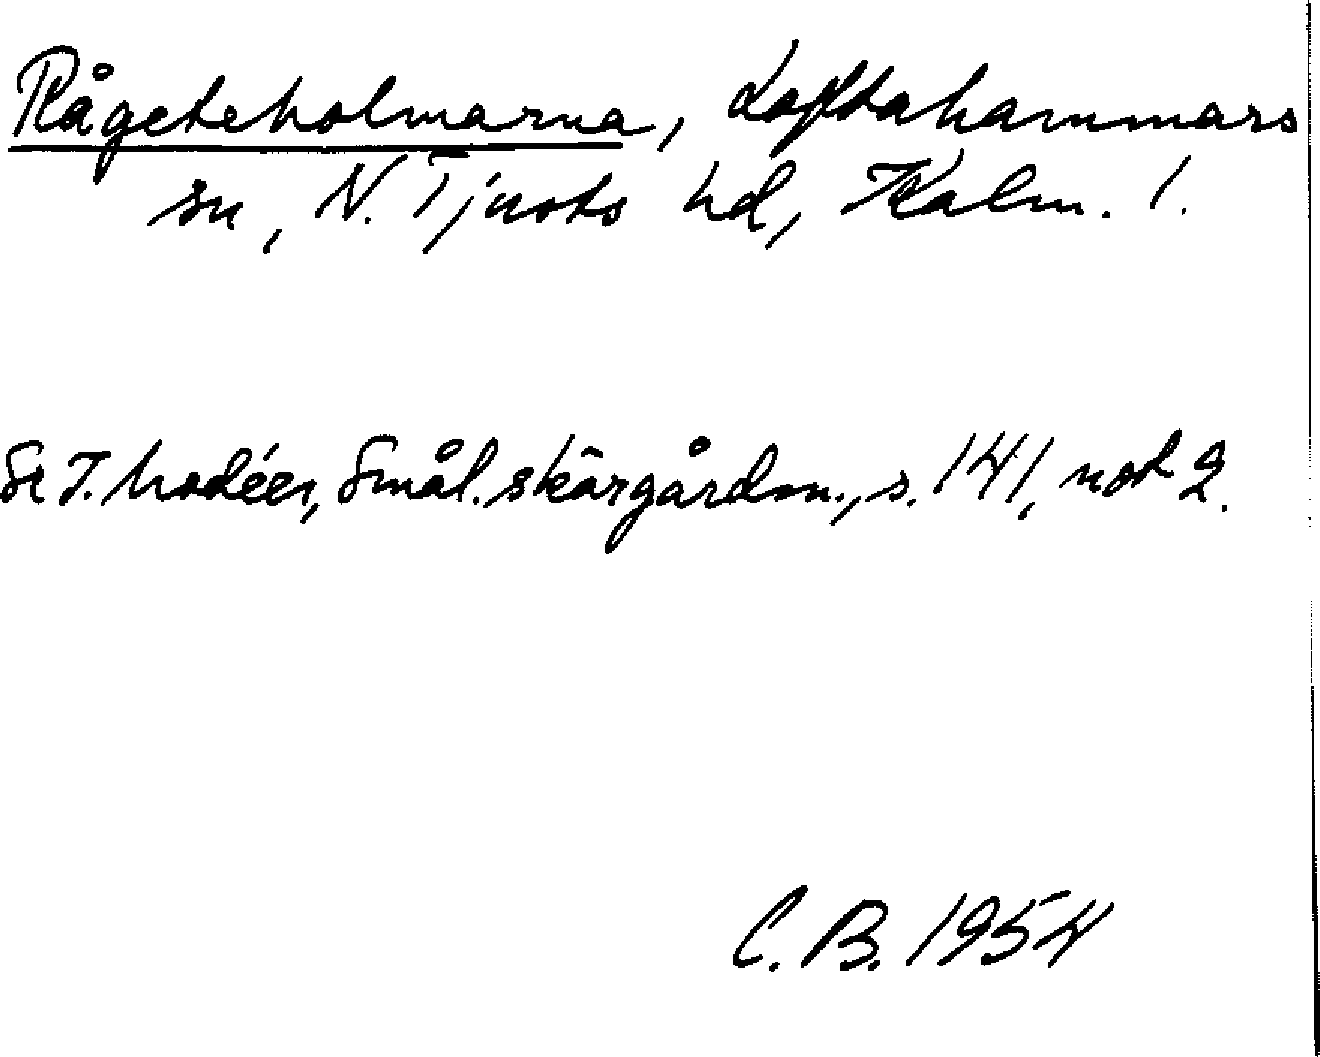 Rågeteholmarna, Loftahammars
sn, N. Tjusts hd, Kalm. l.
Se T. Modéer, Smål. skärgårdsn., s. 141, not 2.
C. B. 1954